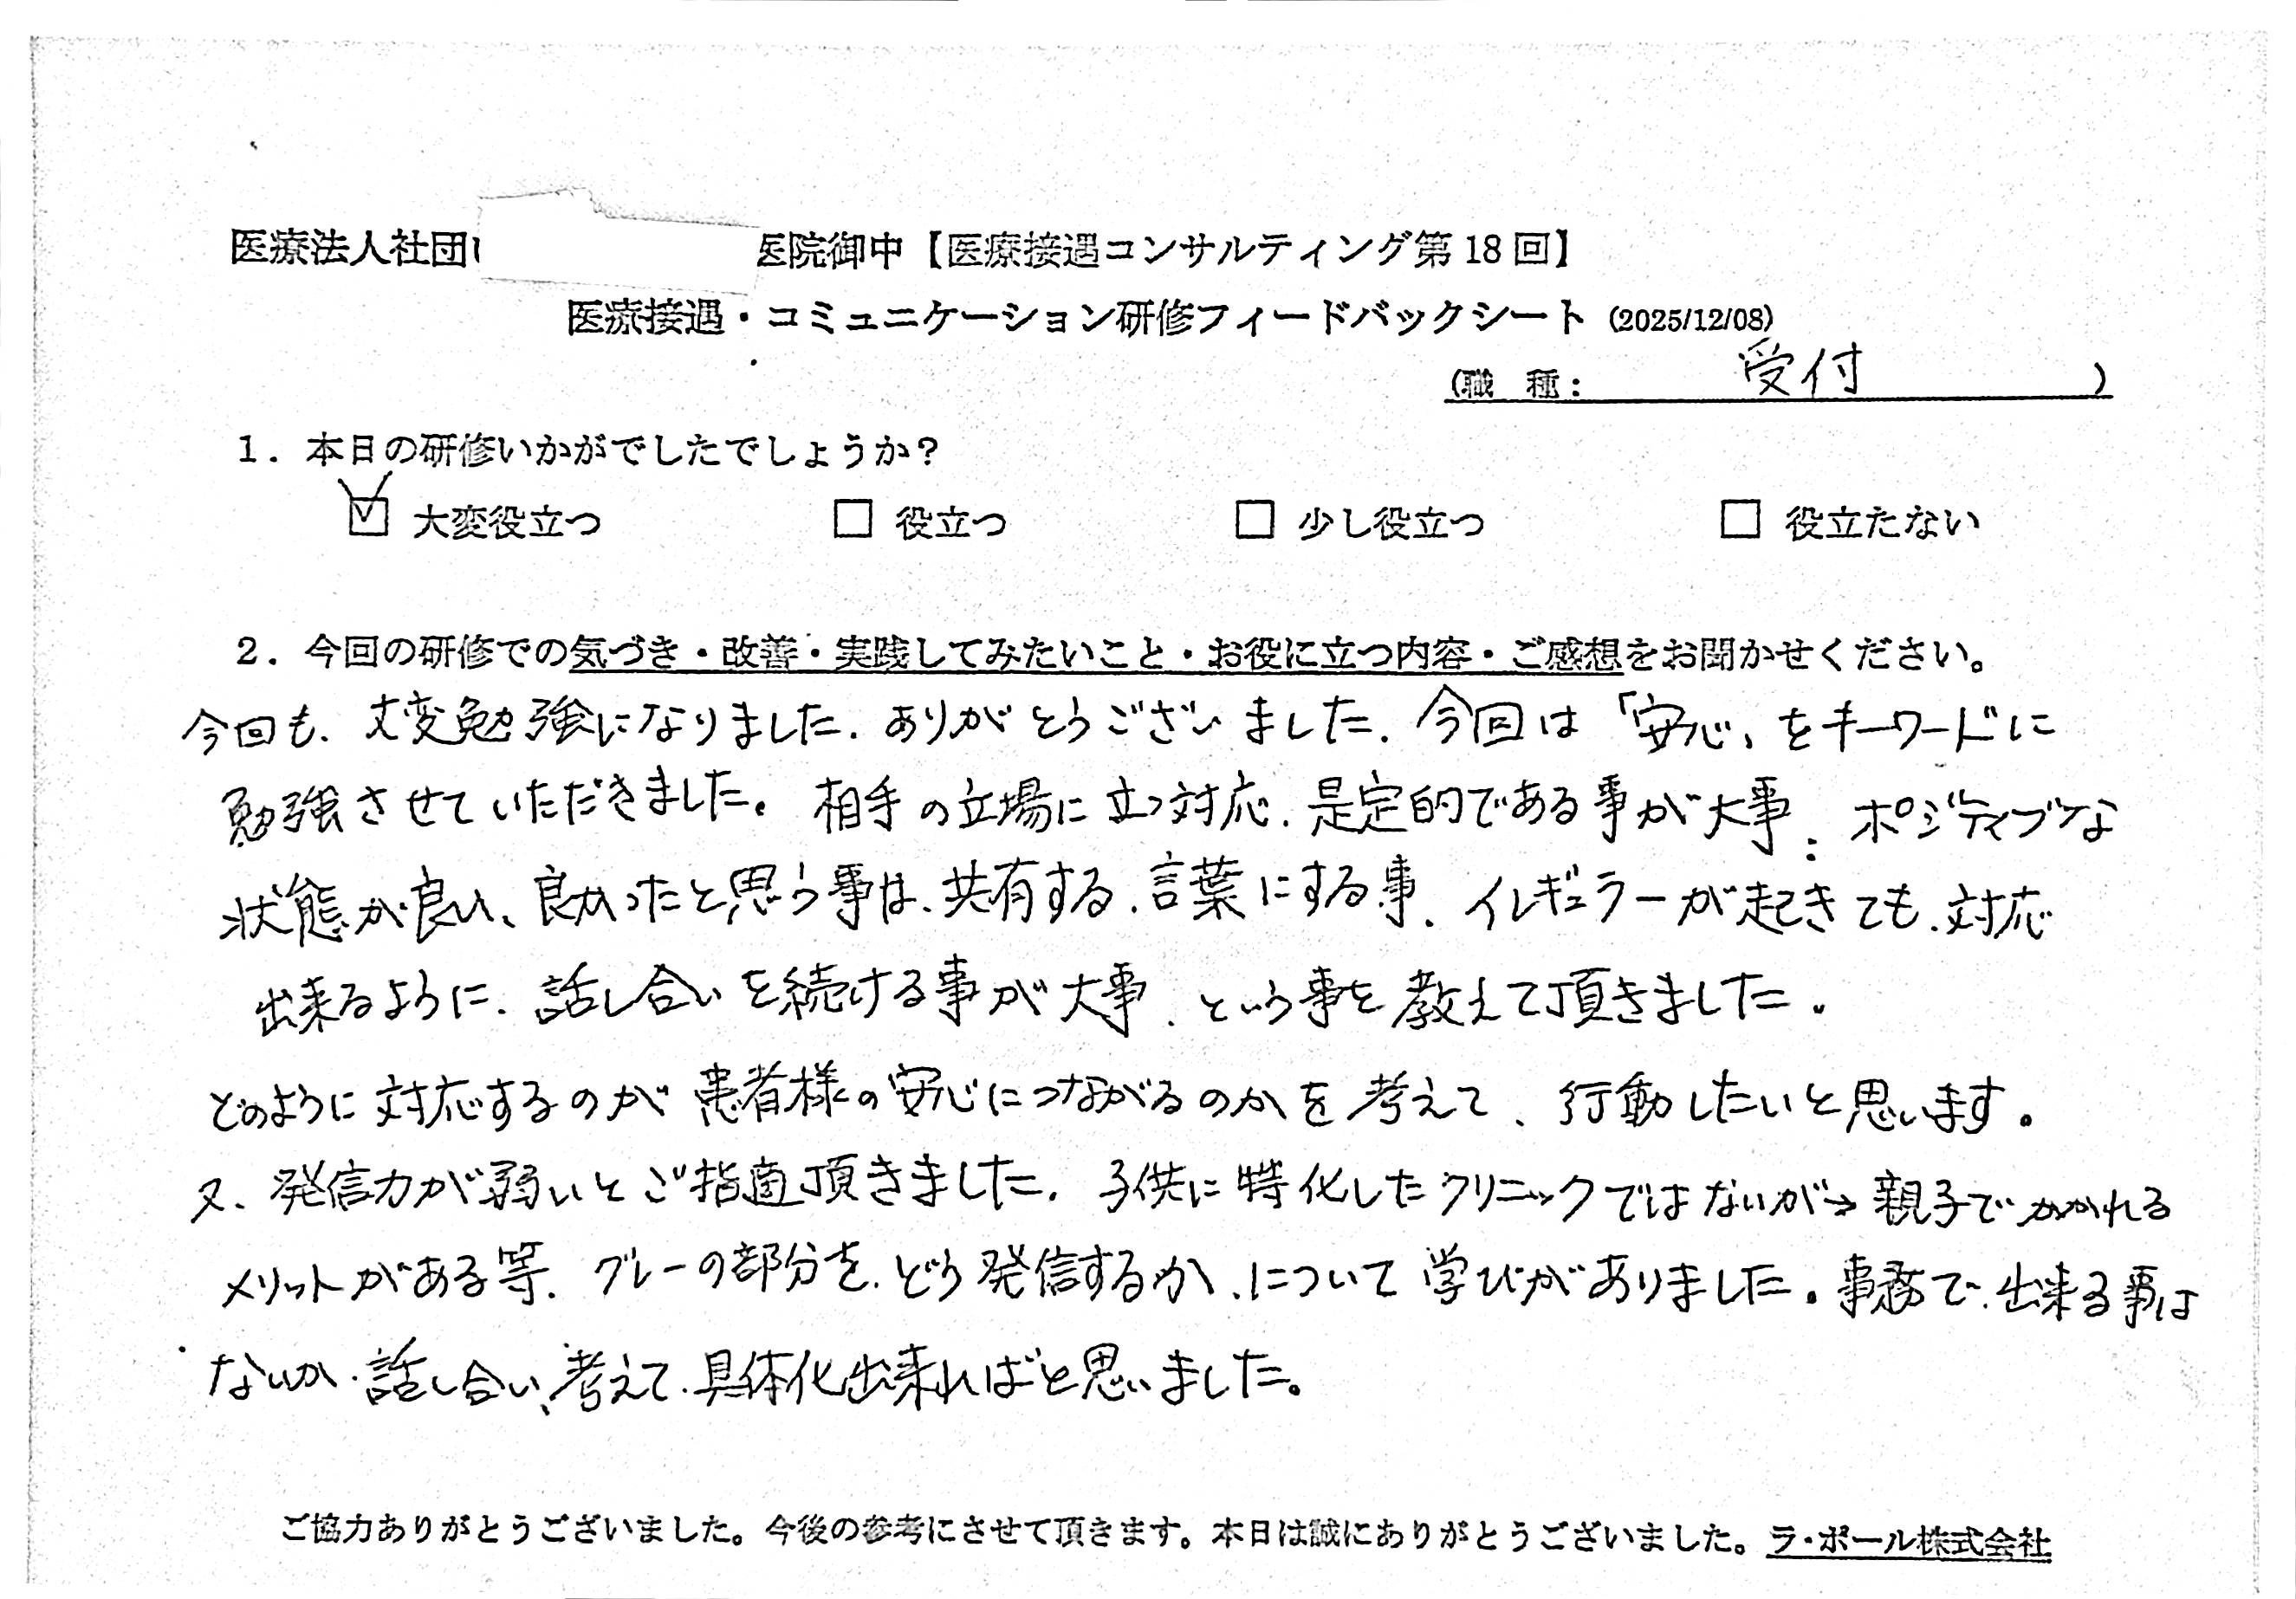 医療法人社団
医院御中【医療接遇コンサルティング第18回】
医療接遇・コミュニケーション研修フィードバックシート (2025/12/08)
(職 種: 受付 )
1. 本日の研修いかがでしたでしょうか?
☑ 大変役立つ □ 役立つ □ 少し役立つ □ 役立たない
2. 今回の研修での気づき・改善・実践してみたいこと・お役に立つ内容・ご感想をお聞かせください。
今回も、大変勉強になりました。ありがとうございました。今回は「安心」をキーワードに
勉強させていただきました。相手の立場に立つ対応、是定的である事が大事、ポジティブな
状態が良い、良かったと思う事は、共有する、言葉にする事、イレギュラーが起きても、対応
出来るように、話し合いを続ける事が大事、という事を教えて頂きました。
どのように対応するのが患者様の安心につながるのかを考えて、行動したいと思います。
又、発信力が弱いとご指摘頂きました。子供に特化したクリニックではないが→親子でかかれる
メリットがある等、グレーの部分を、どう発信するか、について学びがありました。事務で、出来る事は
ないか、話し合い、考えて、具体化出来ればと思いました。
ご協力ありがとうございました。今後の参考にさせて頂きます。本日は誠にありがとうございました。ラ・ポール株式会社